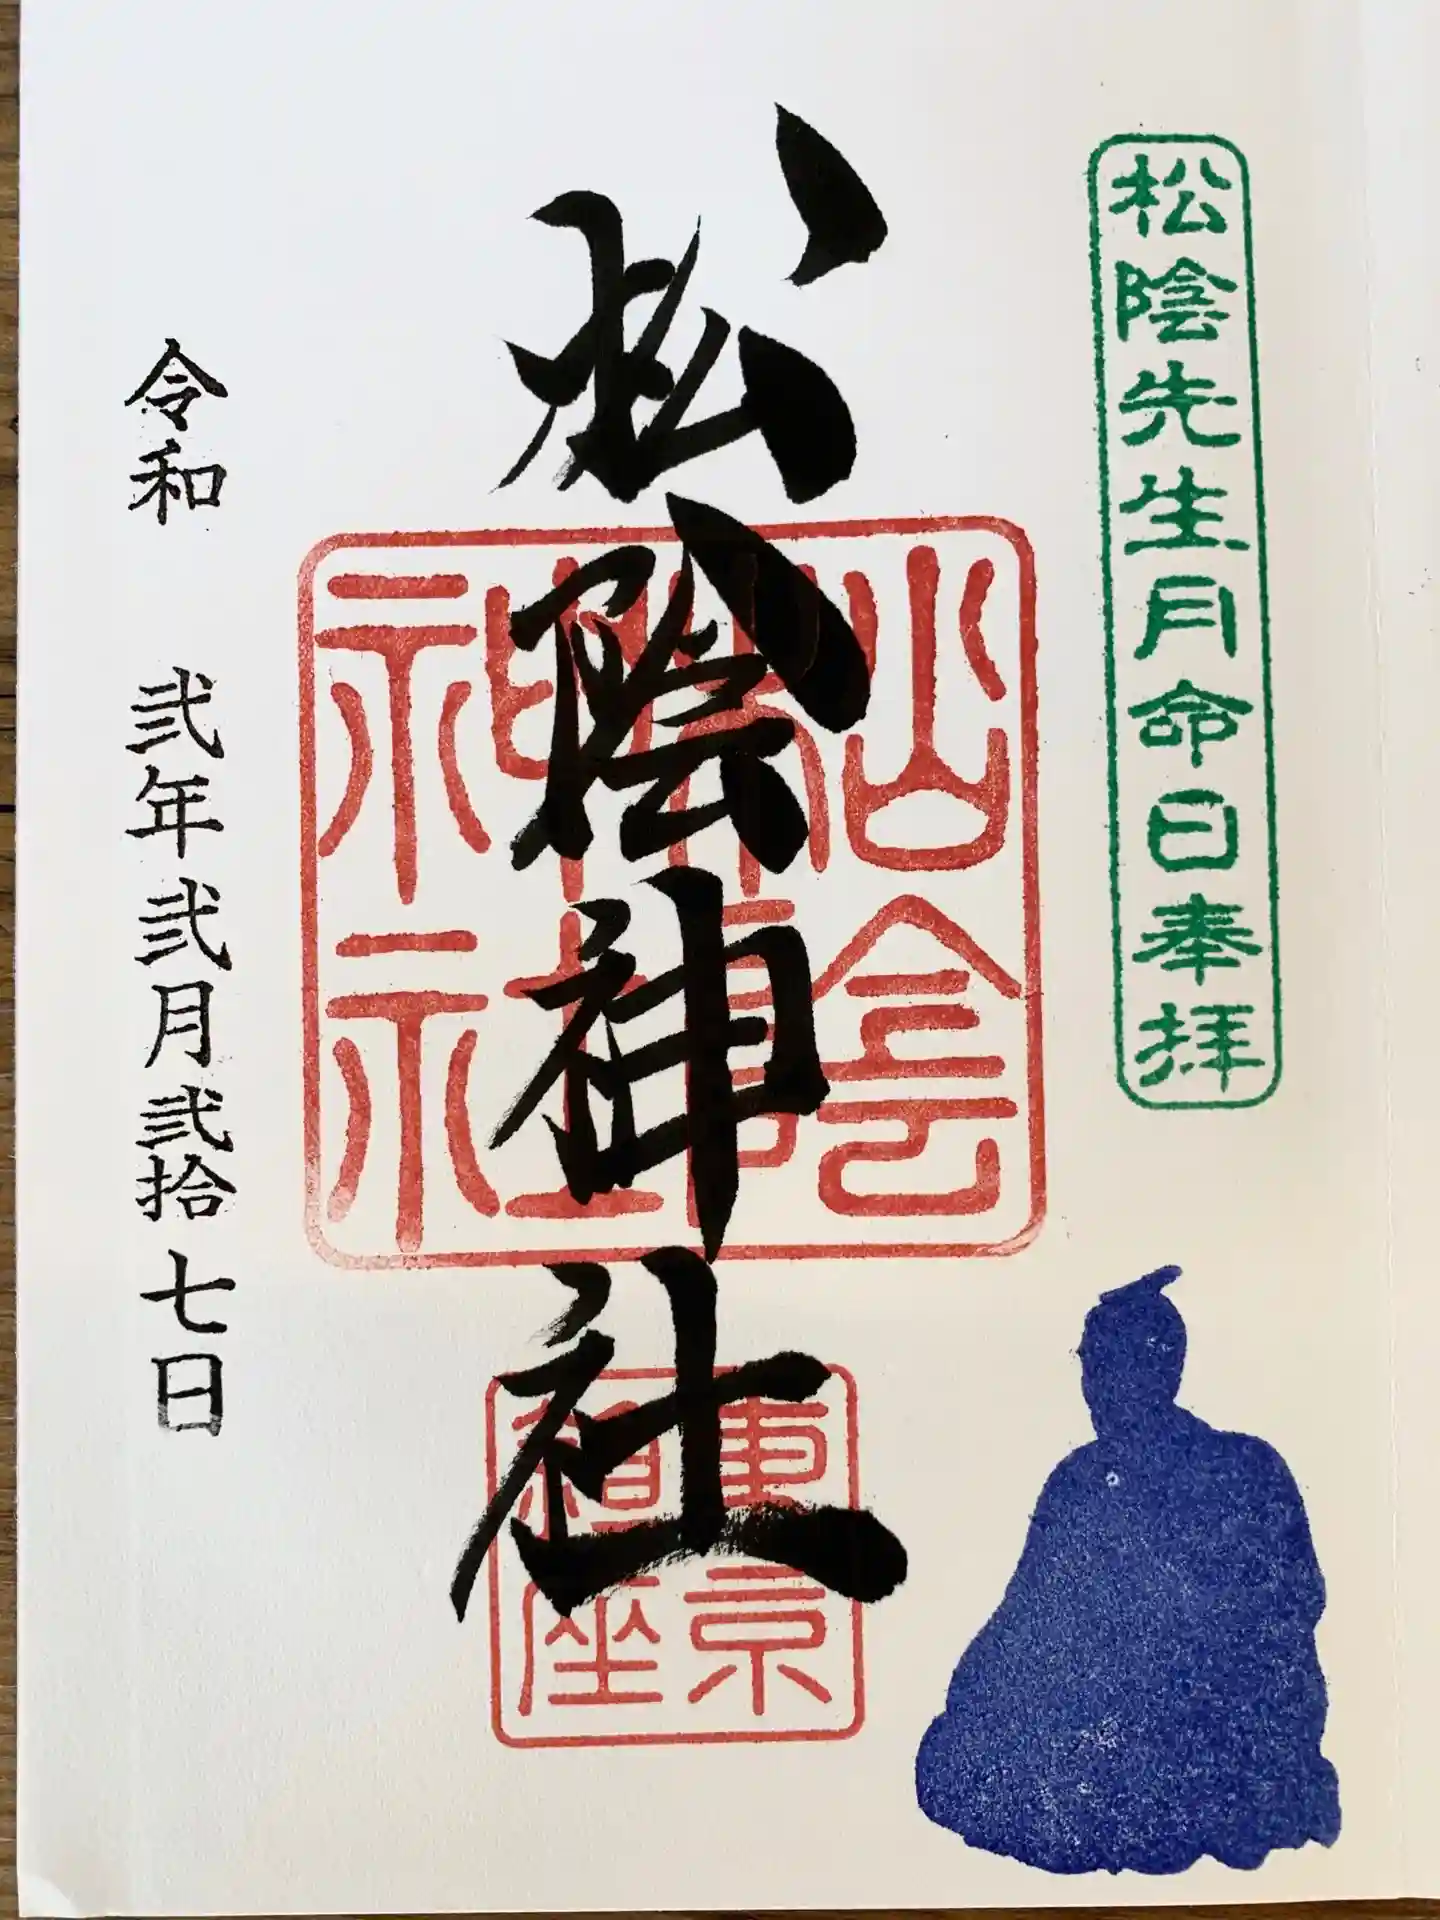 松陰先生月命日奉拝
松陰神社
松陰
神社
東京
鎮座
令和 弐年弐月弐拾七日